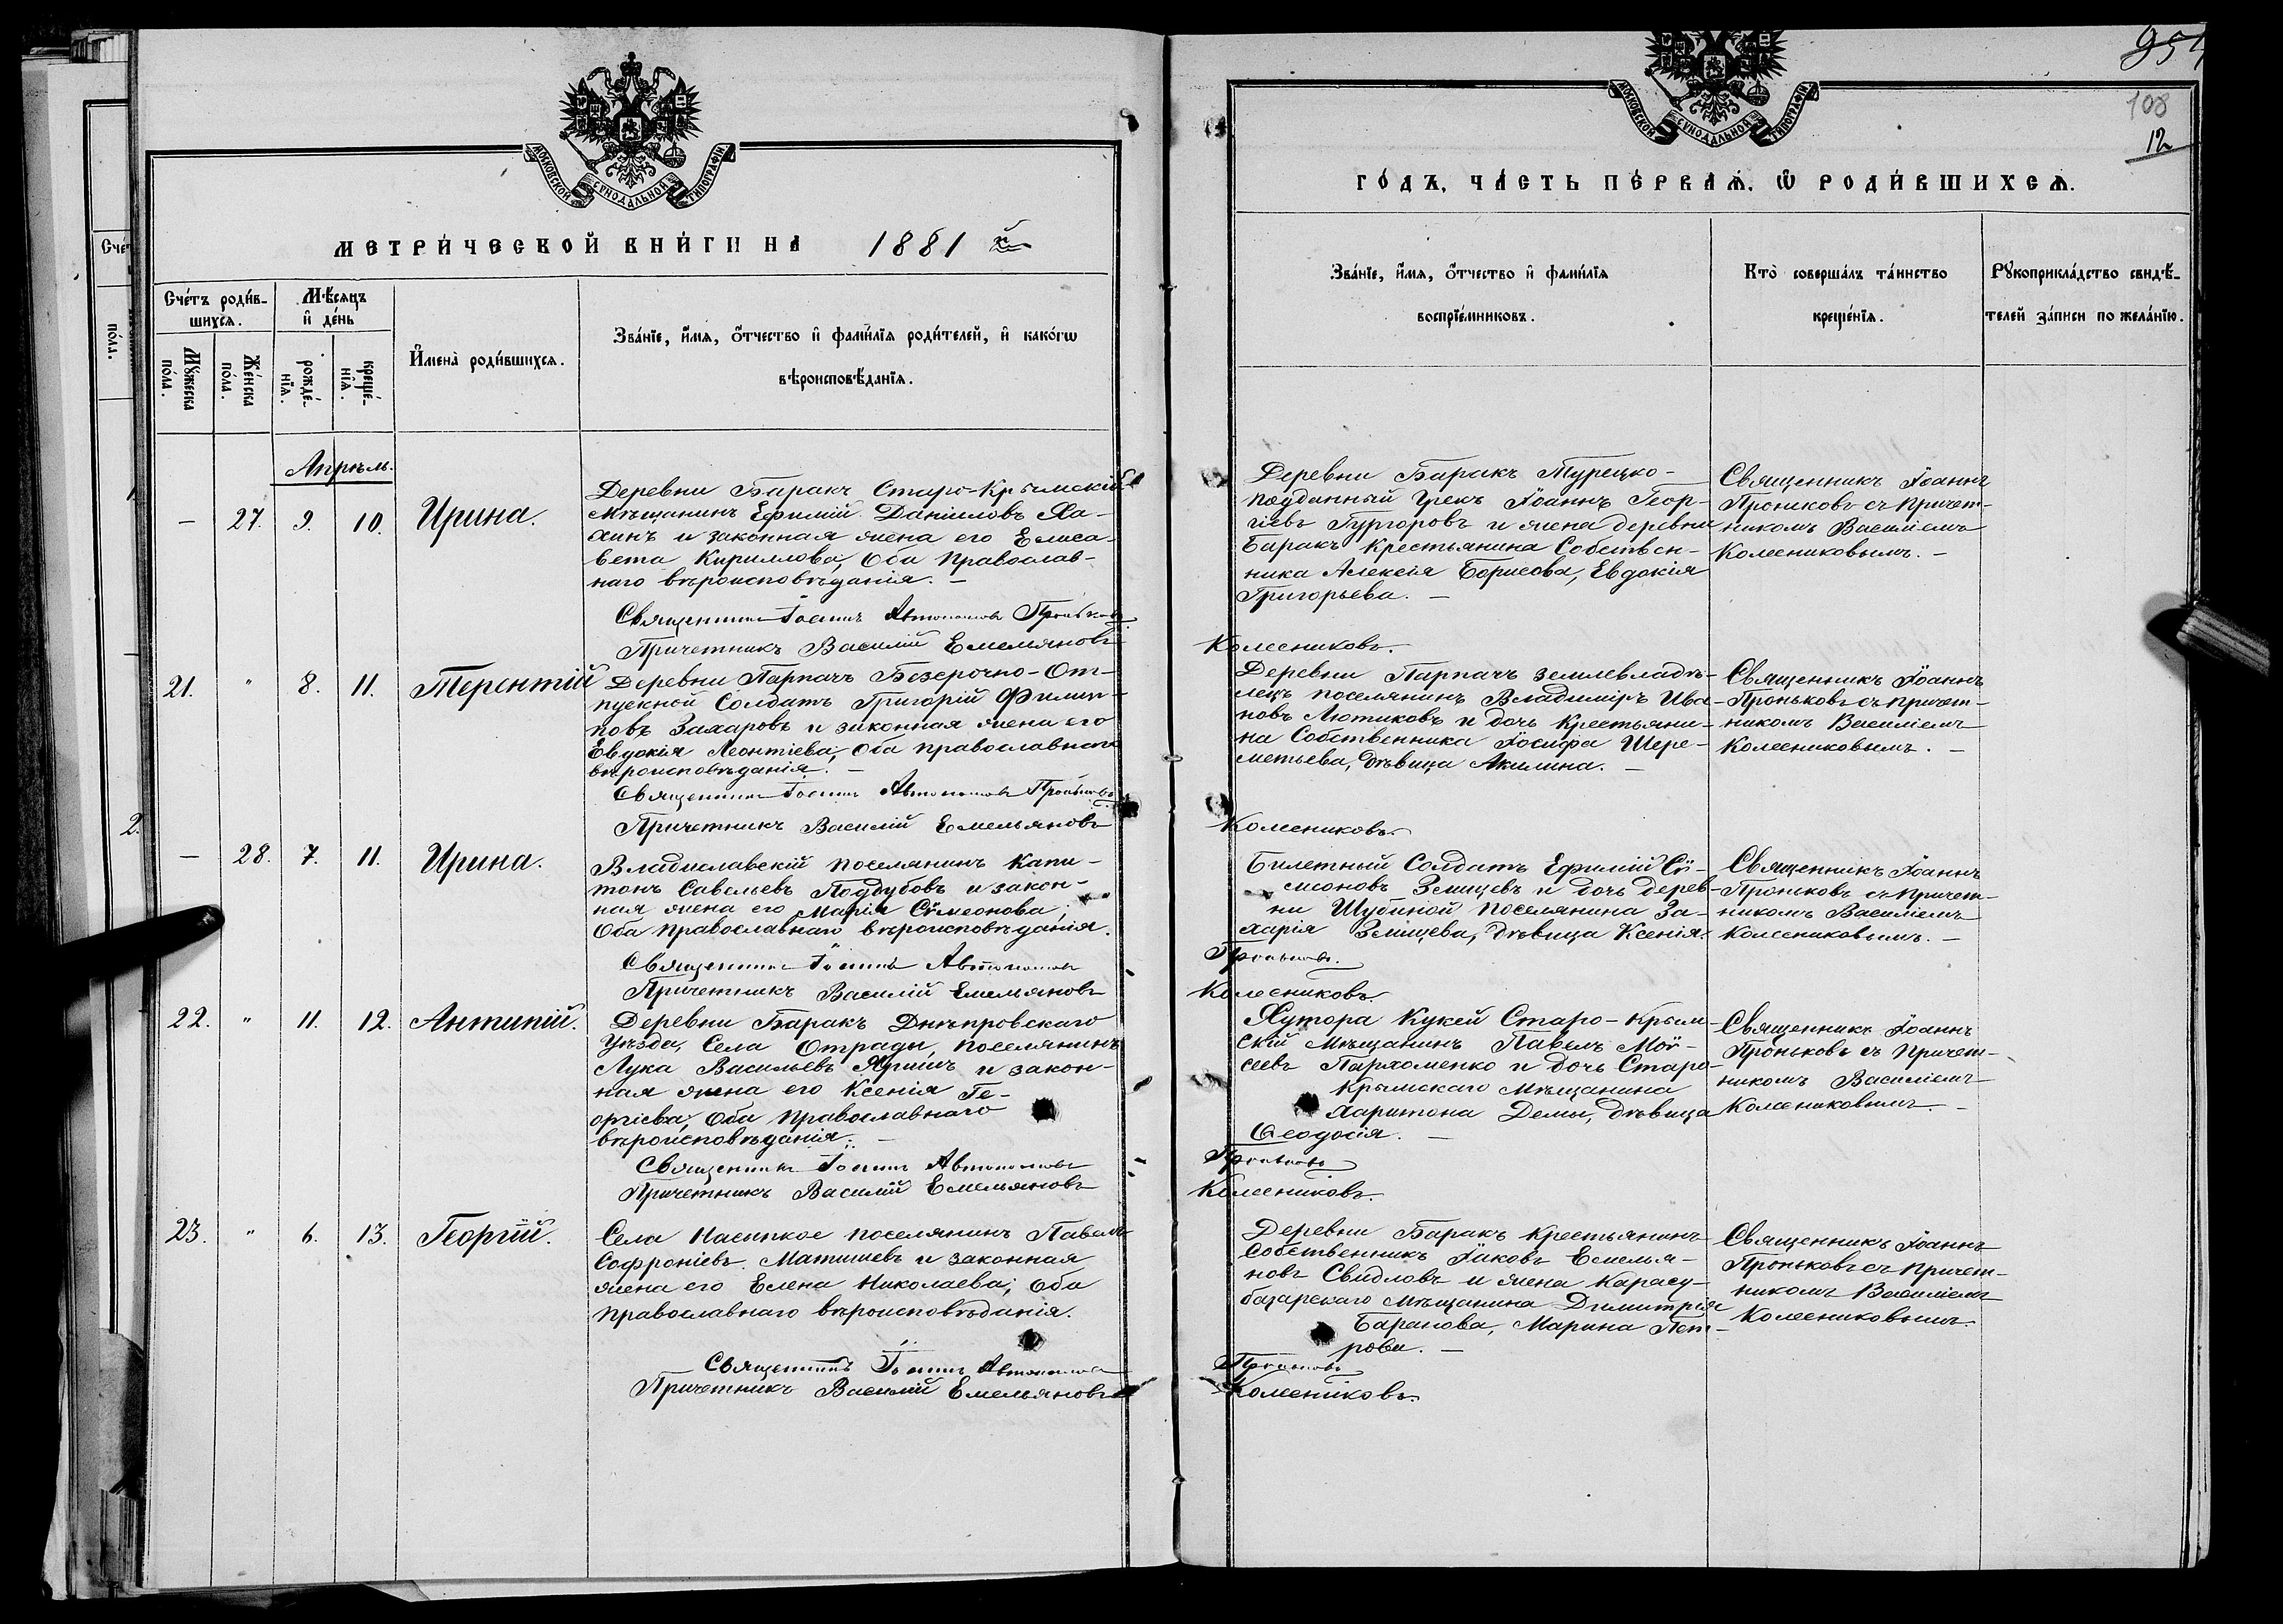 МОСКОВСКОЙ СѴНОДАЛЬНОЙ ТИПОГРАФІИ
МЕТРИ́ЧЕСКОЙ КНИ́ГИ НА 1881 й
Сче́тъ роди́в-
шихся.
Мѣ́сяцъ
и҆ де́нь
Мꙋ́жеска
по́ла.
Же́нска
по́ла.
рожде́-
нїѧ.
креще́-
нїѧ.
И҆мена̀ роди́вшихсѧ.
Зва́нїе, и҆́мѧ, ѻ҆́тчество и҆ фами́лїѧ роди́телей, и҆ како́гѡ
вѣроисповѣ́данїѧ.
Апрѣль.
— 27. 9. 10. Ирина.
Деревни Баракъ Старо-Крымскій
Мѣщанинъ Ефимій Даніиловъ Ха-
хинъ и законная жена его Елиса-
вета Кириллова, Оба Православ-
наго вѣроисповѣданія. —
Священникъ Іоаннъ Автономовъ Проньковъ
Причетникъ Василій Емельяновъ
21. " 8. 11. Терентій
Деревни Парпачъ Безсрочно-От-
пускной Солдатъ Григорій Филип-
повъ Захаровъ и законная жена его
Евдокія Леонтіева, Оба православнаго
вѣроисповѣданія. —
Священникъ Іоаннъ Автономовъ Проньковъ
Причетникъ Василій Емельяновъ
— 28. 7. 11. Ирина.
Владиславскій поселянинъ Капи-
тонъ Савельевъ Поддубовъ и закон-
ная жена его Марія Сѵмеонова;
Оба православнаго вѣроисповѣданія.
Священникъ Іоаннъ Автономовъ
Причетникъ Василій Емельяновъ
22. " 11. 12. Антипій.
Деревни Баракъ Днѣпровскаго
Уѣзда, Села Отрады, поселянинъ
Лука Васильевъ Яришъ и закон-
ная жена его Ксенія Ге-
оргіева, Оба Православнаго
вѣроисповѣданія. —
Священникъ Іоаннъ Автономовъ
Причетникъ Василій Емельяновъ
23. " 6. 13. Георгій.
Села Насыпкое поселянинъ Павелъ
Софроніевъ Матишевъ и законная
жена его Елена Николаева; Оба
Православнаго вѣроисповѣданія.
Священникъ Іоаннъ Автономовъ
Причетникъ Василій Емельяновъ
951
108
12
МОСКОВСКОЙ СѴНОДАЛЬНОЙ ТИПОГРАФІИ
ГО́ДЪ, ЧА́СТЬ ПЕ́РВАЯ, Ѡ҆ РОДИ́ВШИХСЯ.
Зва́нїе, и҆́мѧ, ѻ҆́тчество и҆ фами́лїѧ
воспрїе́мниковъ.
Кто̀ соверша́лъ та́инство
креще́нїѧ.
Рꙋкоприкла́дство свидѣ́-
телей за́писи по жела́нїю.
Деревни Баракъ Турецко-
подданный Грекъ Іоаннъ Геор-
гіевъ Гургоровъ и жена деревни
Баракъ Крестьянина Собствен-
ника Алексія Борисова, Евдокія
Григорьева. —
Священникъ Іоаннъ
Проньковъ съ Причет-
никомъ Василіемъ
Колесниковымъ. —
Колесниковъ.
Деревни Парпачъ землевладѣ-
лецъ поселянинъ Владиміръ Ива-
новъ Лютиковъ и дочь Крестьяни-
на Собственника Іосифа Шере-
метьева, дѣвица Акилина. —
Священникъ Іоаннъ
Проньковъ съ причет-
никомъ Василіемъ
Колесниковымъ. —
Колесниковъ.
Билетный Солдатъ Ефимій Сѵ-
меоновъЗемцевъ и дочь дерев-
ни Шубиной поселянина За-
харія Земцева, дѣвица Ксенія.
Священникъ Іоаннъ
Проньковъ съ Причет-
никомъ Василіемъ
Колесниковымъ. —
Проньковъ.
Колесниковъ.
Хутора Кукей Старо-Крым-
скій Мѣщанинъ Павелъ Моѵ-
сеевъ Пархоменко и дочь Старо-
Крымскаго Мѣщанина
Харитона Демы, дѣвица
Ѳеодосія. —
Священникъ Іоаннъ
Проньковъ съ Причет-
никомъ Василіемъ
Колесниковымъ. —
Проньковъ
Колесниковъ.
Деревни Баракъ Крестьянинъ
Собственникъ Іаковъ Емелья-
новъ Свидловъ и жена Карасу-
базарскаго Мѣщанина Димитрія
Баранова, Марина Пет-
рова. —
Священникъ Іоаннъ
Проньковъ съ Причет-
никомъ Василіемъ
Колесниковымъ.
Проньковъ
Колесниковъ.